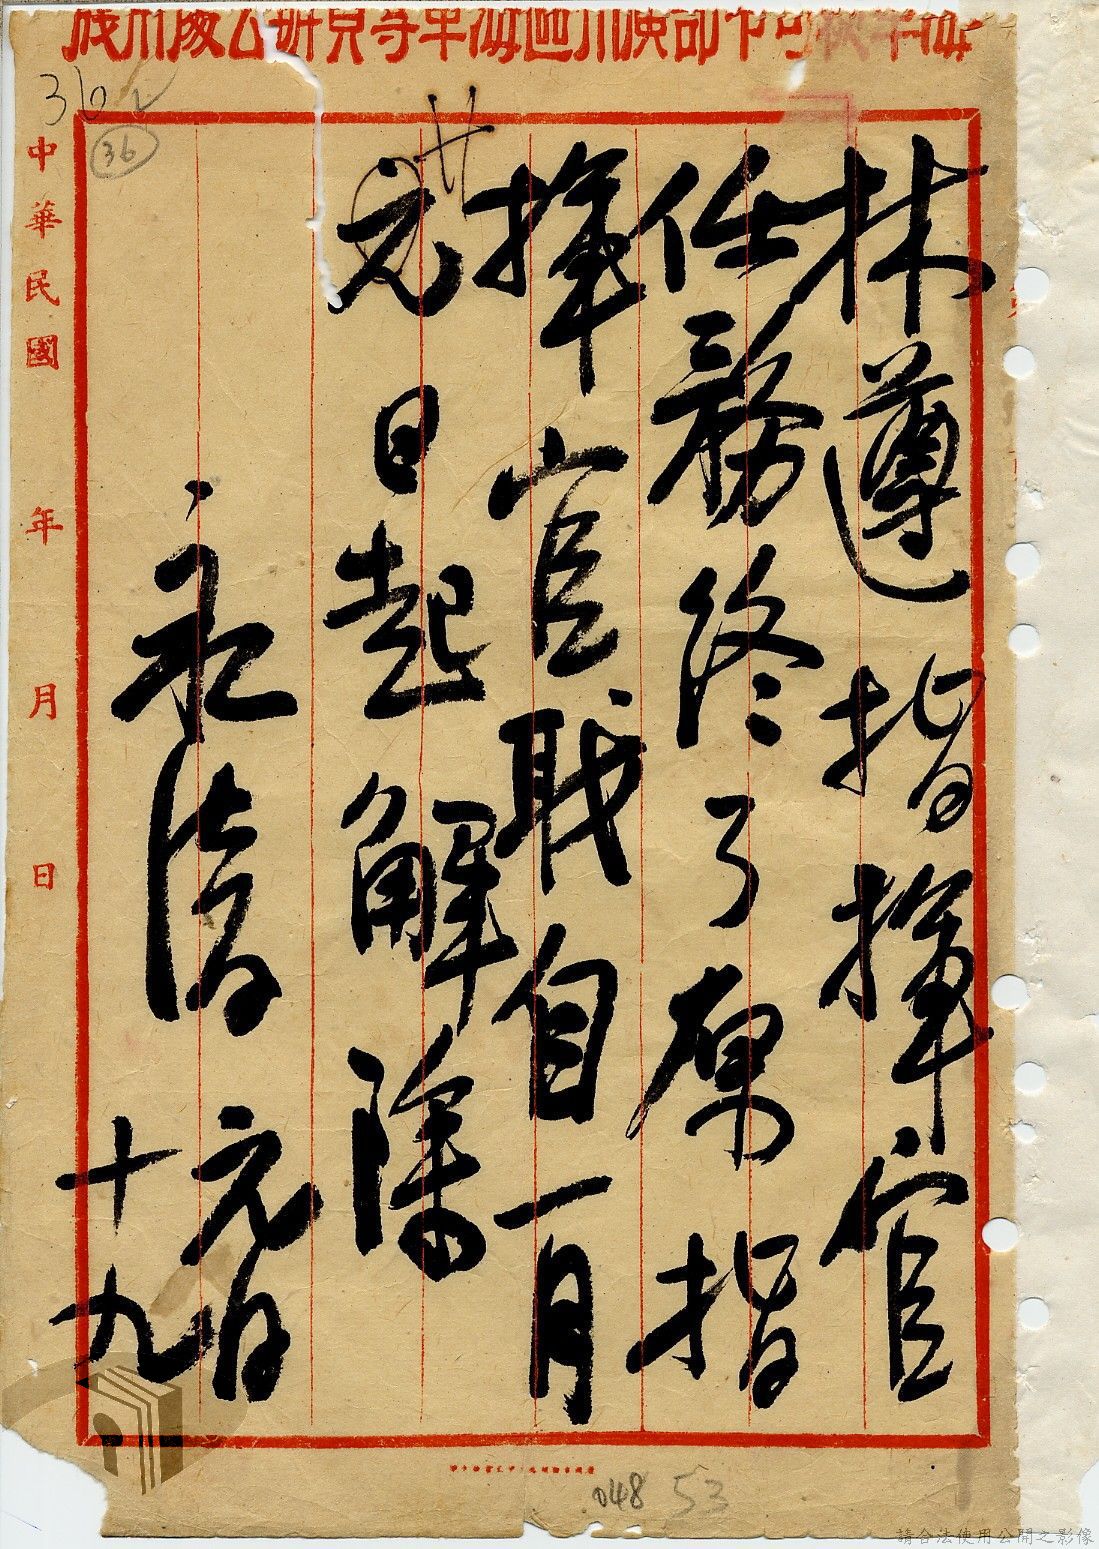 36
36
林遵指揮官
任務終了原指
揮官職自一月
廿
元日起解除
永清 元月
十九
中華民國 年 月 日
048 53
請合法使用公開之影像